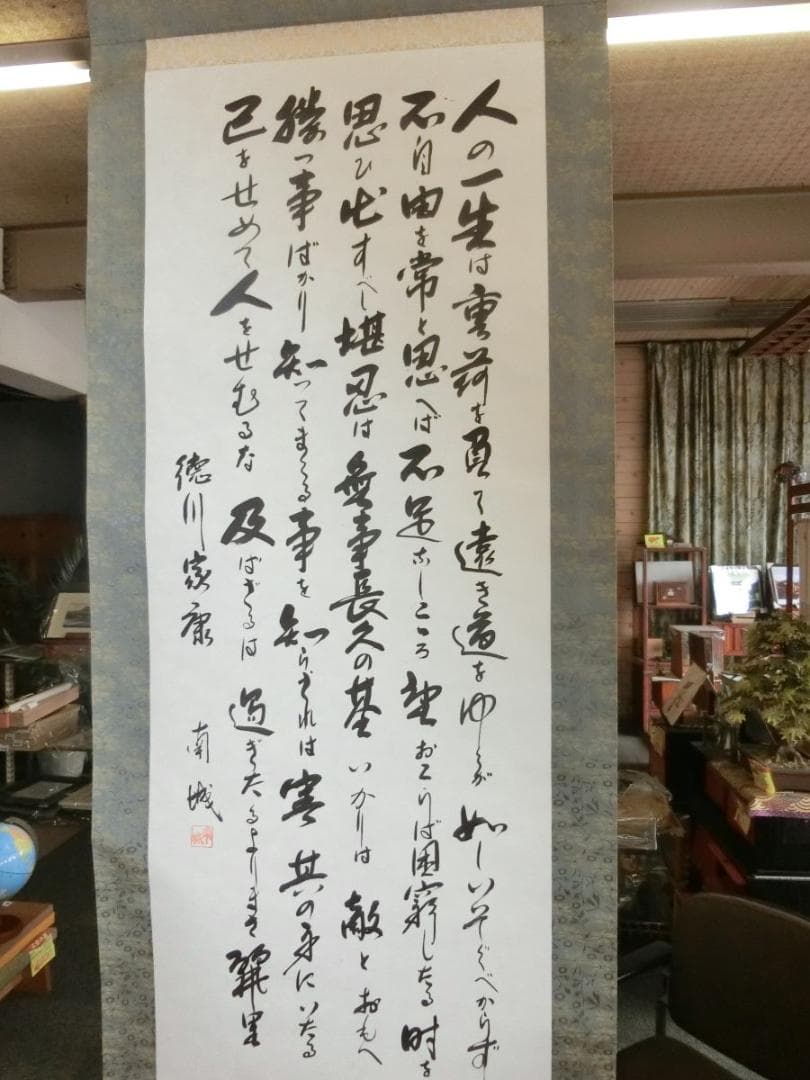 人の一生は重荷を負て遠き道をゆくが如しいそぐべからず
不自由を常と思へば不足なしこころ望おこらば困窮したる時を
思ひ出すべし堪忍は無事長久の基いかりは敵とおもへ
勝つ事ばかり知つてまくる事を知らざれは害其の身にいたる
己をせめて人をせむるな及ばざるは過ぎたるよりまさ麗里
徳川家康
南城